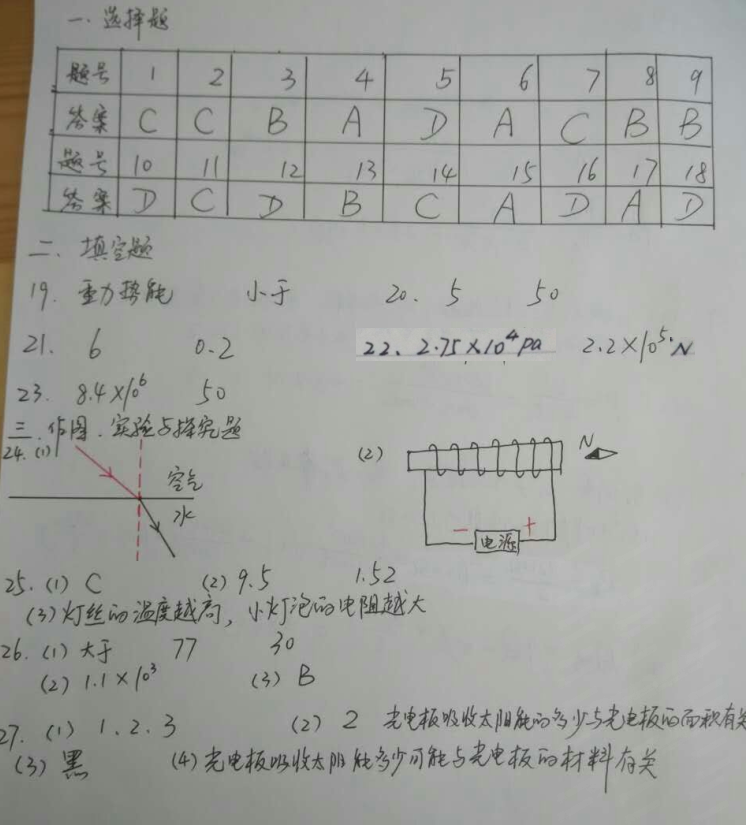 一、选择题
题号 1 2 3 4 5 6 7 8 9
答案 C C B A D A C B B
题号 10 11 12 13 14 15 16 17 18
答案 D C D B C A D A D
二、填空题
19. 重力势能 小于 20. 5 50
21. 6 0.2 22. 2.75×10⁴pa 2.2×10⁵N
23. 8.4×10⁶ 50
三.作图.实验与探究题
24.(1) 空气 水 (2) N − + 电源
25.(1) C (2) 9.5 1.52
(3)灯丝的温度越高,小灯泡的电阻越大
26.(1)大于 77 30
(2) 1.1×10³ (3) B
27.(1) 1、2、3 (2) 2 光电板吸收太阳能的多少与光电板的面积有关
(3)黑 (4)光电板吸收太阳能多少可能与光电板的材料有关